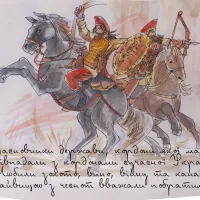 асновники держави, кордони якої ма
івпадали з кордонами сучасної Укра
Любили золото, вино, війну та кана
айвищою з чеснот вважали побратим